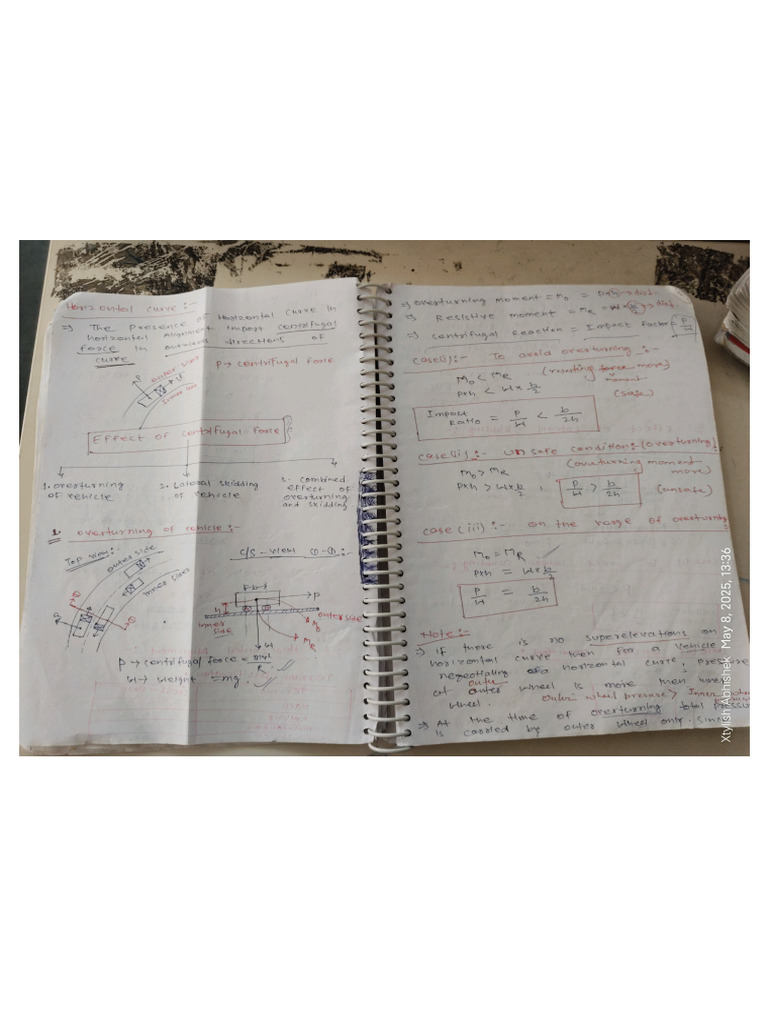 Horizontal curve :-
⇒ The presence of Horizontal curve in
horizontal alignment impart centrifugal
force in outward directions of
curve
P → centrifugal force
outer side
P
Inner side
Effect of centrifugal force
1. overturning
of vehicle
2. Lateral skidding
of vehicle
3. combined
effect of
overturning
and skidding
1. overturning of vehicle :-
Top view :-
outer side
inner side
C/S - view ①-① :-
b
P
h
inner
side
outer side
Mo
MR
W
P → centrifugal force = mv²/R
W → weight = mg
⇒ overturning moment = Mo = P×h → dist.
⇒ Resistive moment = MR = W × b/2 → dist.
⇒ centrifugal Reaction = Impact Factor = P/W
case(i):- To avoid overturning :-
Mo < MR (resisting force more)
moment
P×h < W×b/2 (safe)
Impact Ratio = P/W < b/2h
case(ii):- un safe condition:-(overturning):-
Mo > MR (overturning moment
more)
P×h > W×b/2 , P/W > b/2h (unsafe)
case (iii) :- on the range of overturning
Mo = MR
P×h = W×b/2
P/W = b/2h
Note :-
⇒ if there is no superelevations on
horizontal curve then for a vehicle
negotiating a horizontal curve, pressure
outer
at outer wheel is more then inner
wheel. outer wheel pressure > Inner
⇒ At the time of overturning total pressure
is carried by outer wheel only.
Xtylish Abhishek May 8, 2025, 13:36